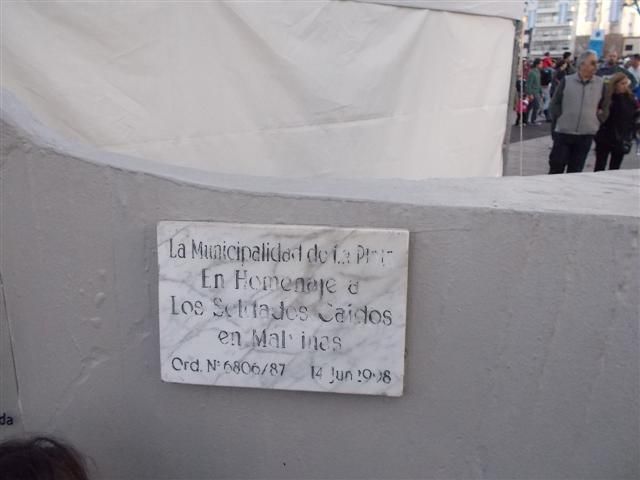 La Municipalidad de La Plata
En Homenaje a
Los Soldados Caídos
en Malvinas
Ord. Nº 6806/87 14 Jun 1998
da